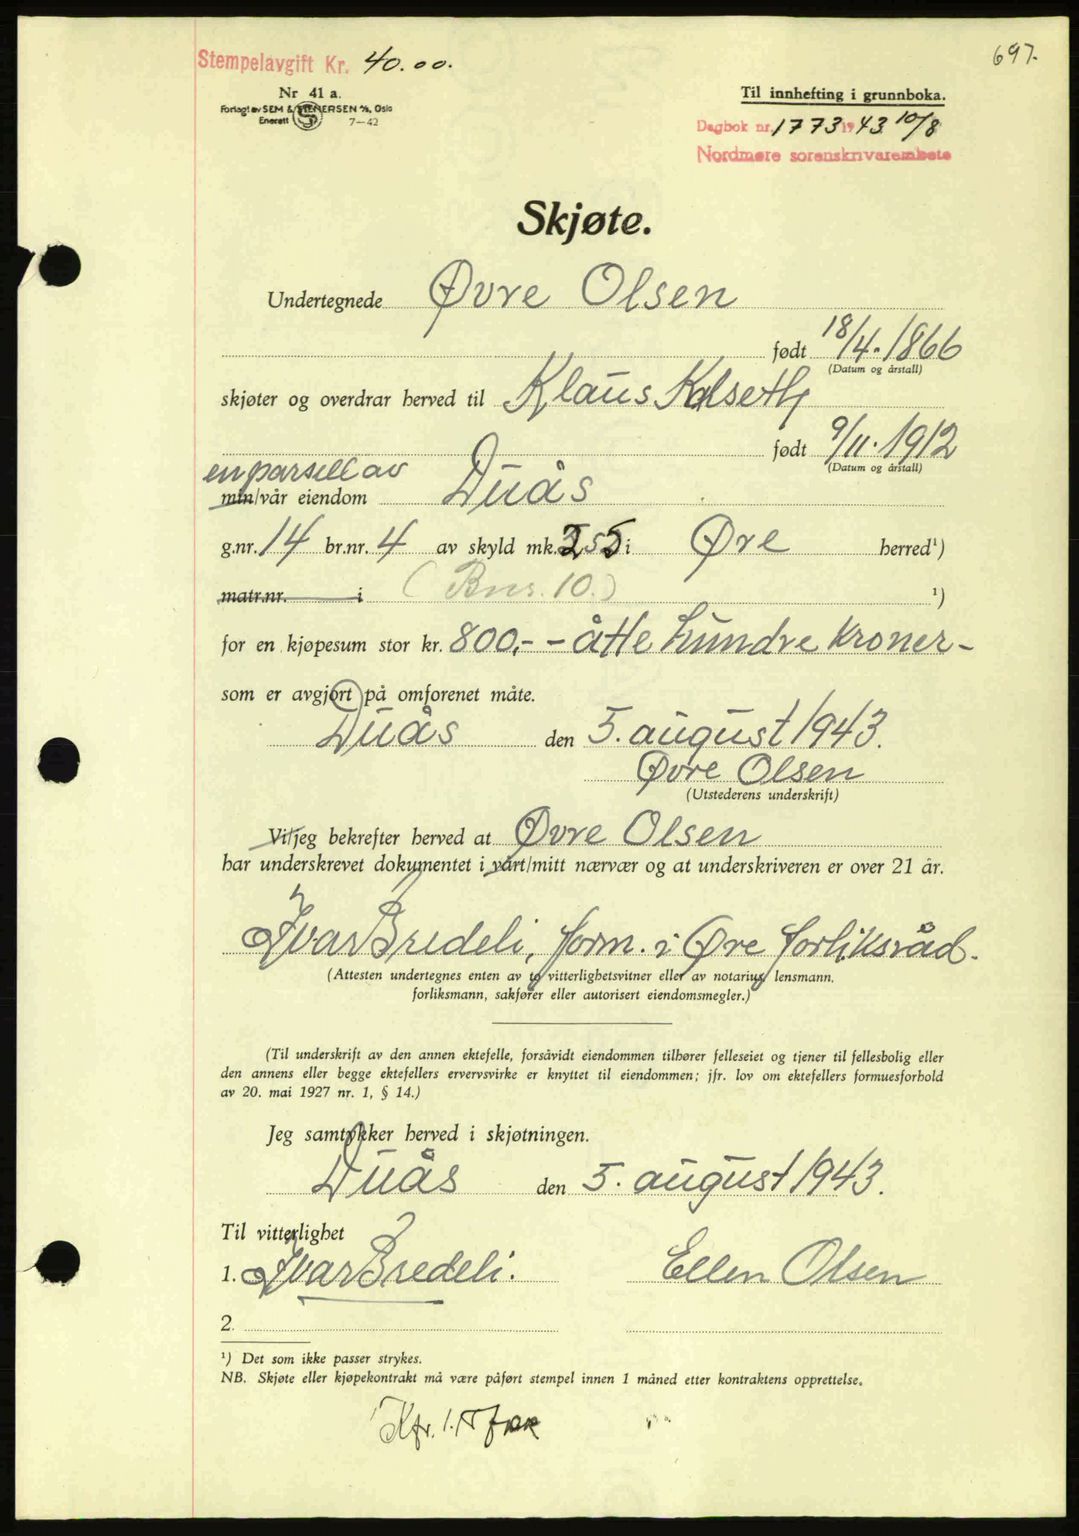 697.
Stempelavgift Kr. 40.00.
Nr 41 a.
Forlagt av SEM & STENERSEN A/S, Oslo
Enerett 7-42
Til innhefting i grunnboka.
Dagbok nr. 1773 1943 10/8
Nordmøre sorenskrivarembete
Skjøte.
Undertegnede Øvre Olsen
født 18/4-1866
(Datum og årstall)
skjøter og overdrar herved til Klaus Kalseth
født 9/11-1912
(Datum og årstall)
en parsell av
min/vår eiendom Duås
g.nr. 14 br.nr. 4 av skyld mk. i Øre herred¹)
matr.nr. i (Bnr. 10.) ¹)
for en kjøpesum stor kr. 800,- - åtte hundre kroner -
som er avgjort på omforenet måte.
Duås den 5. august 1943.
Øvre Olsen
(Utstederens underskrift)
Vi/jeg bekrefter herved at Øvre Olsen
har underskrevet dokumentet i vårt/mitt nærvær og at underskriveren er over 21 år.
Ivar Bredeli, form. i Øre forliksråd.
(Attesten undertegnes enten av to vitterlighetsvitner eller av notarius, lensmann,
forliksmann, sakfører eller autorisert eiendomsmegler.)
(Til underskrift av den annen ektefelle, forsåvidt eiendommen tilhører felleseiet og tjener til fellesbolig eller
den annens eller begge ektefellers ervervsvirke er knyttet til eiendommen; jfr. lov om ektefellers formuesforhold
av 20. mai 1927 nr. 1, § 14.)
Jeg samtykker herved i skjøtningen.
Duås den 5. august 1943.
Til vitterlighet
1. Ivar Bredeli. Ellen Olsen
2.
¹) Det som ikke passer strykes.
NB. Skjøte eller kjøpekontrakt må være påført stempel innen 1 måned etter kontraktens opprettelse.